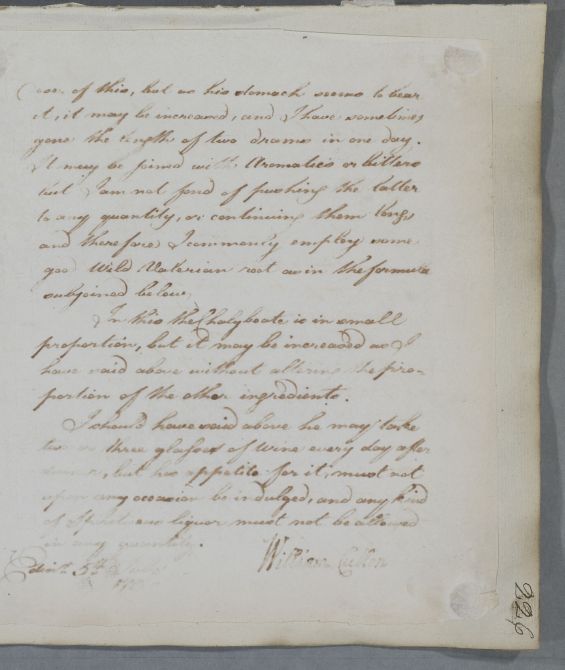 of this, but as his stomach seems to bear
it, it may be increased, and I have sometimes
gone the length of two drams in one day.
It may be joined with Aromatics or bitters
but I am not fond of pushing the latter
to any quantity, or continuing them long
and therefore I commonly employ some
good Wild Valerian root as in the formula
subjoined below,
In this the Chalybeate is in small
proportion, but it may be increased as I
have said above without altering the pro-
portion of the other ingredients.
I should have said above he may take
two or three glasses of Wine every day after
dinner, but his appetite for it, must not
upon any occasion be indulged, and any kind
of liquor must not be allowed
in any quantity.
William Cullen
Edinr. 5th
226